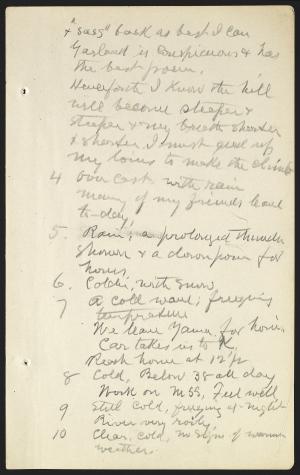 & "sass" back as best I can
Garland is conspicuous & has
the best poem.
Henceforth I know the hill
will become steeper &
steeper & my breath shorter
& shorter. I must gird up
my loins to make the climb
4 Overcast with rain
many of my friends leave
to-day,
5. Rain, a prolonged thunder
shower & a downpour for
hours,
6. Colder, with snow,
7 A cold wave; freezing
temperature
We leave Yama for home
Car takes us to K.
Reach home at 12
8 Cold, Below 38 all day
Work on MSS, Feel well
9 Still cold, freezing at night
River very roily
10 Clear, cold, no sign of warmer
weather.